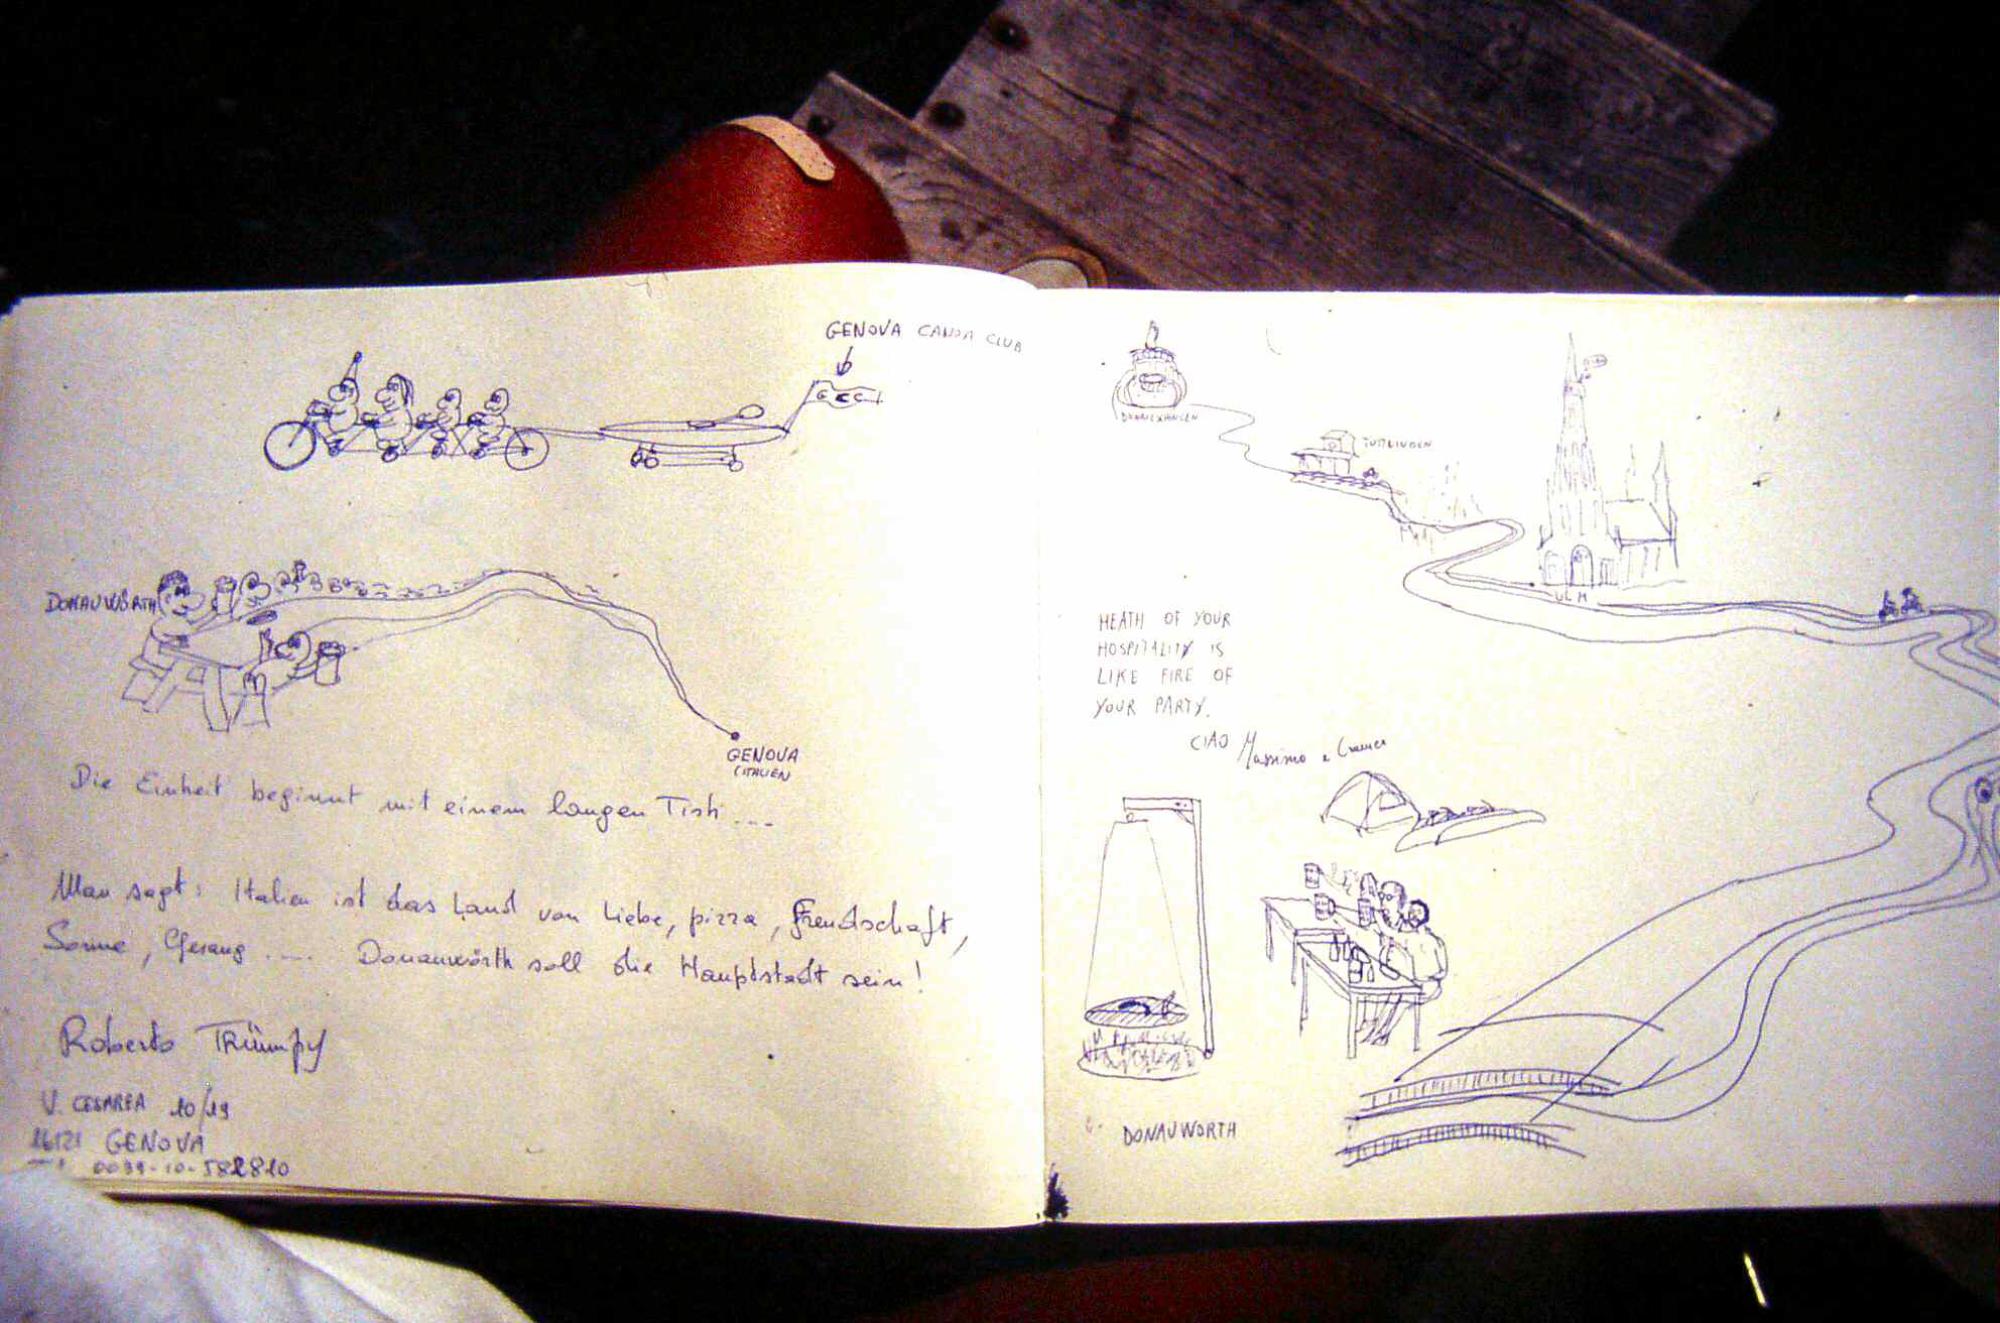 GENOVA CANOA CLUB
GCC
DONAUWÖRTH
GENOVA
(ITALIEN
Die Einheit beginnt mit einem langen Tish ...
Man sagt: Italien ist das Land von Liebe, pizza, Freudschaft,
Sonne, Gesang .... Donauwörth soll die Hauptstadt sein!
Roberto Trümpy
V. CESAREA 10/19
16121 GENOVA
0039-10-581810
TUTTLINGEN
ULM
HEATH OF YOUR
HOSPITALITY IS
LIKE FIRE OF
YOUR PARTY.
CIAO Massimo e
DONAUWORTH